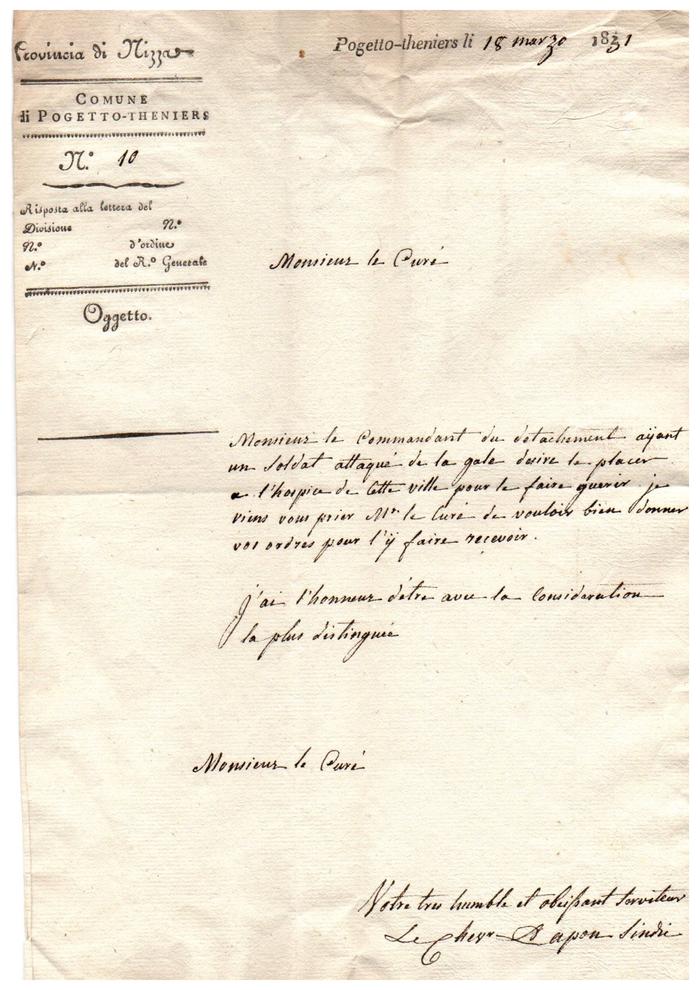 Provincia di Nizza
Pogetto-theniers li 18 marzo 1831
COMUNE
di POGETTO-THENIERS
N.° 10
Risposta alla lettera del
Divisione N.°
N.° d'ordine
N.° del R.° Generale
Oggetto.
Monsieur le Curé
Monsieur le Commandant du detachement ayant
un soldat attaqué de la gale desire le placer
a l'hospice de Cette ville pour le faire guerir je
viens vous prier Mr. le Curé de vouloir bien donner
vos ordres pour l'y faire recevoir.
J'ai l'honneur d'etre avec la Consideration
la plus distinguée
Monsieur le Curé
Votre tres humble et obeissant serviteur
Le Chevr